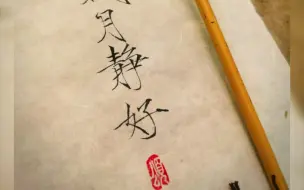 月静好